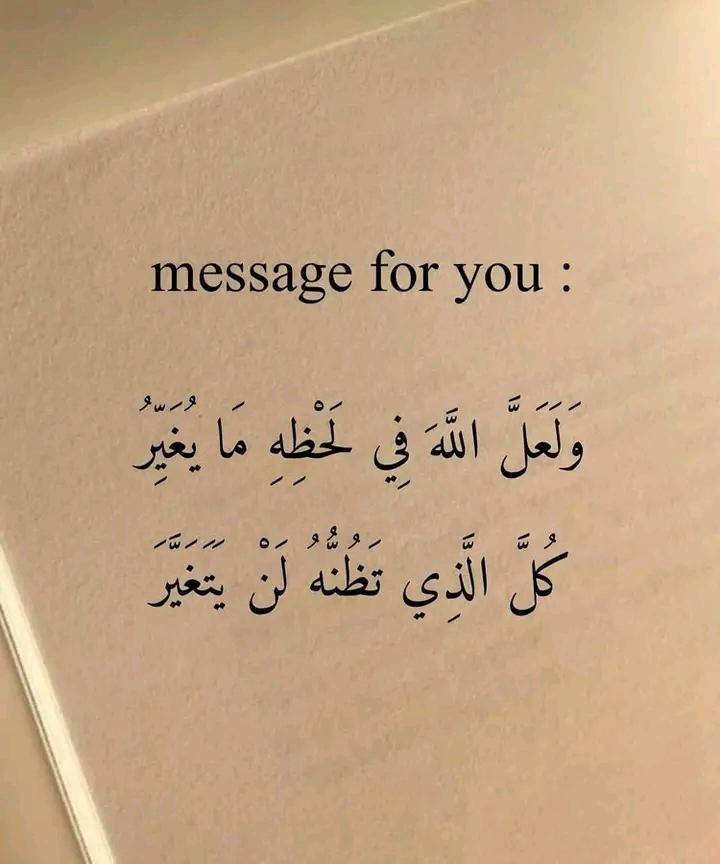 message for you :
وَلَعَلَّ اللَّهَ فِي لَحْظِهِ مَا يُغَيِّرُ
كُلَّ الَّذِي تَظُنُّهُ لَنْ يَتَغَيَّرَ